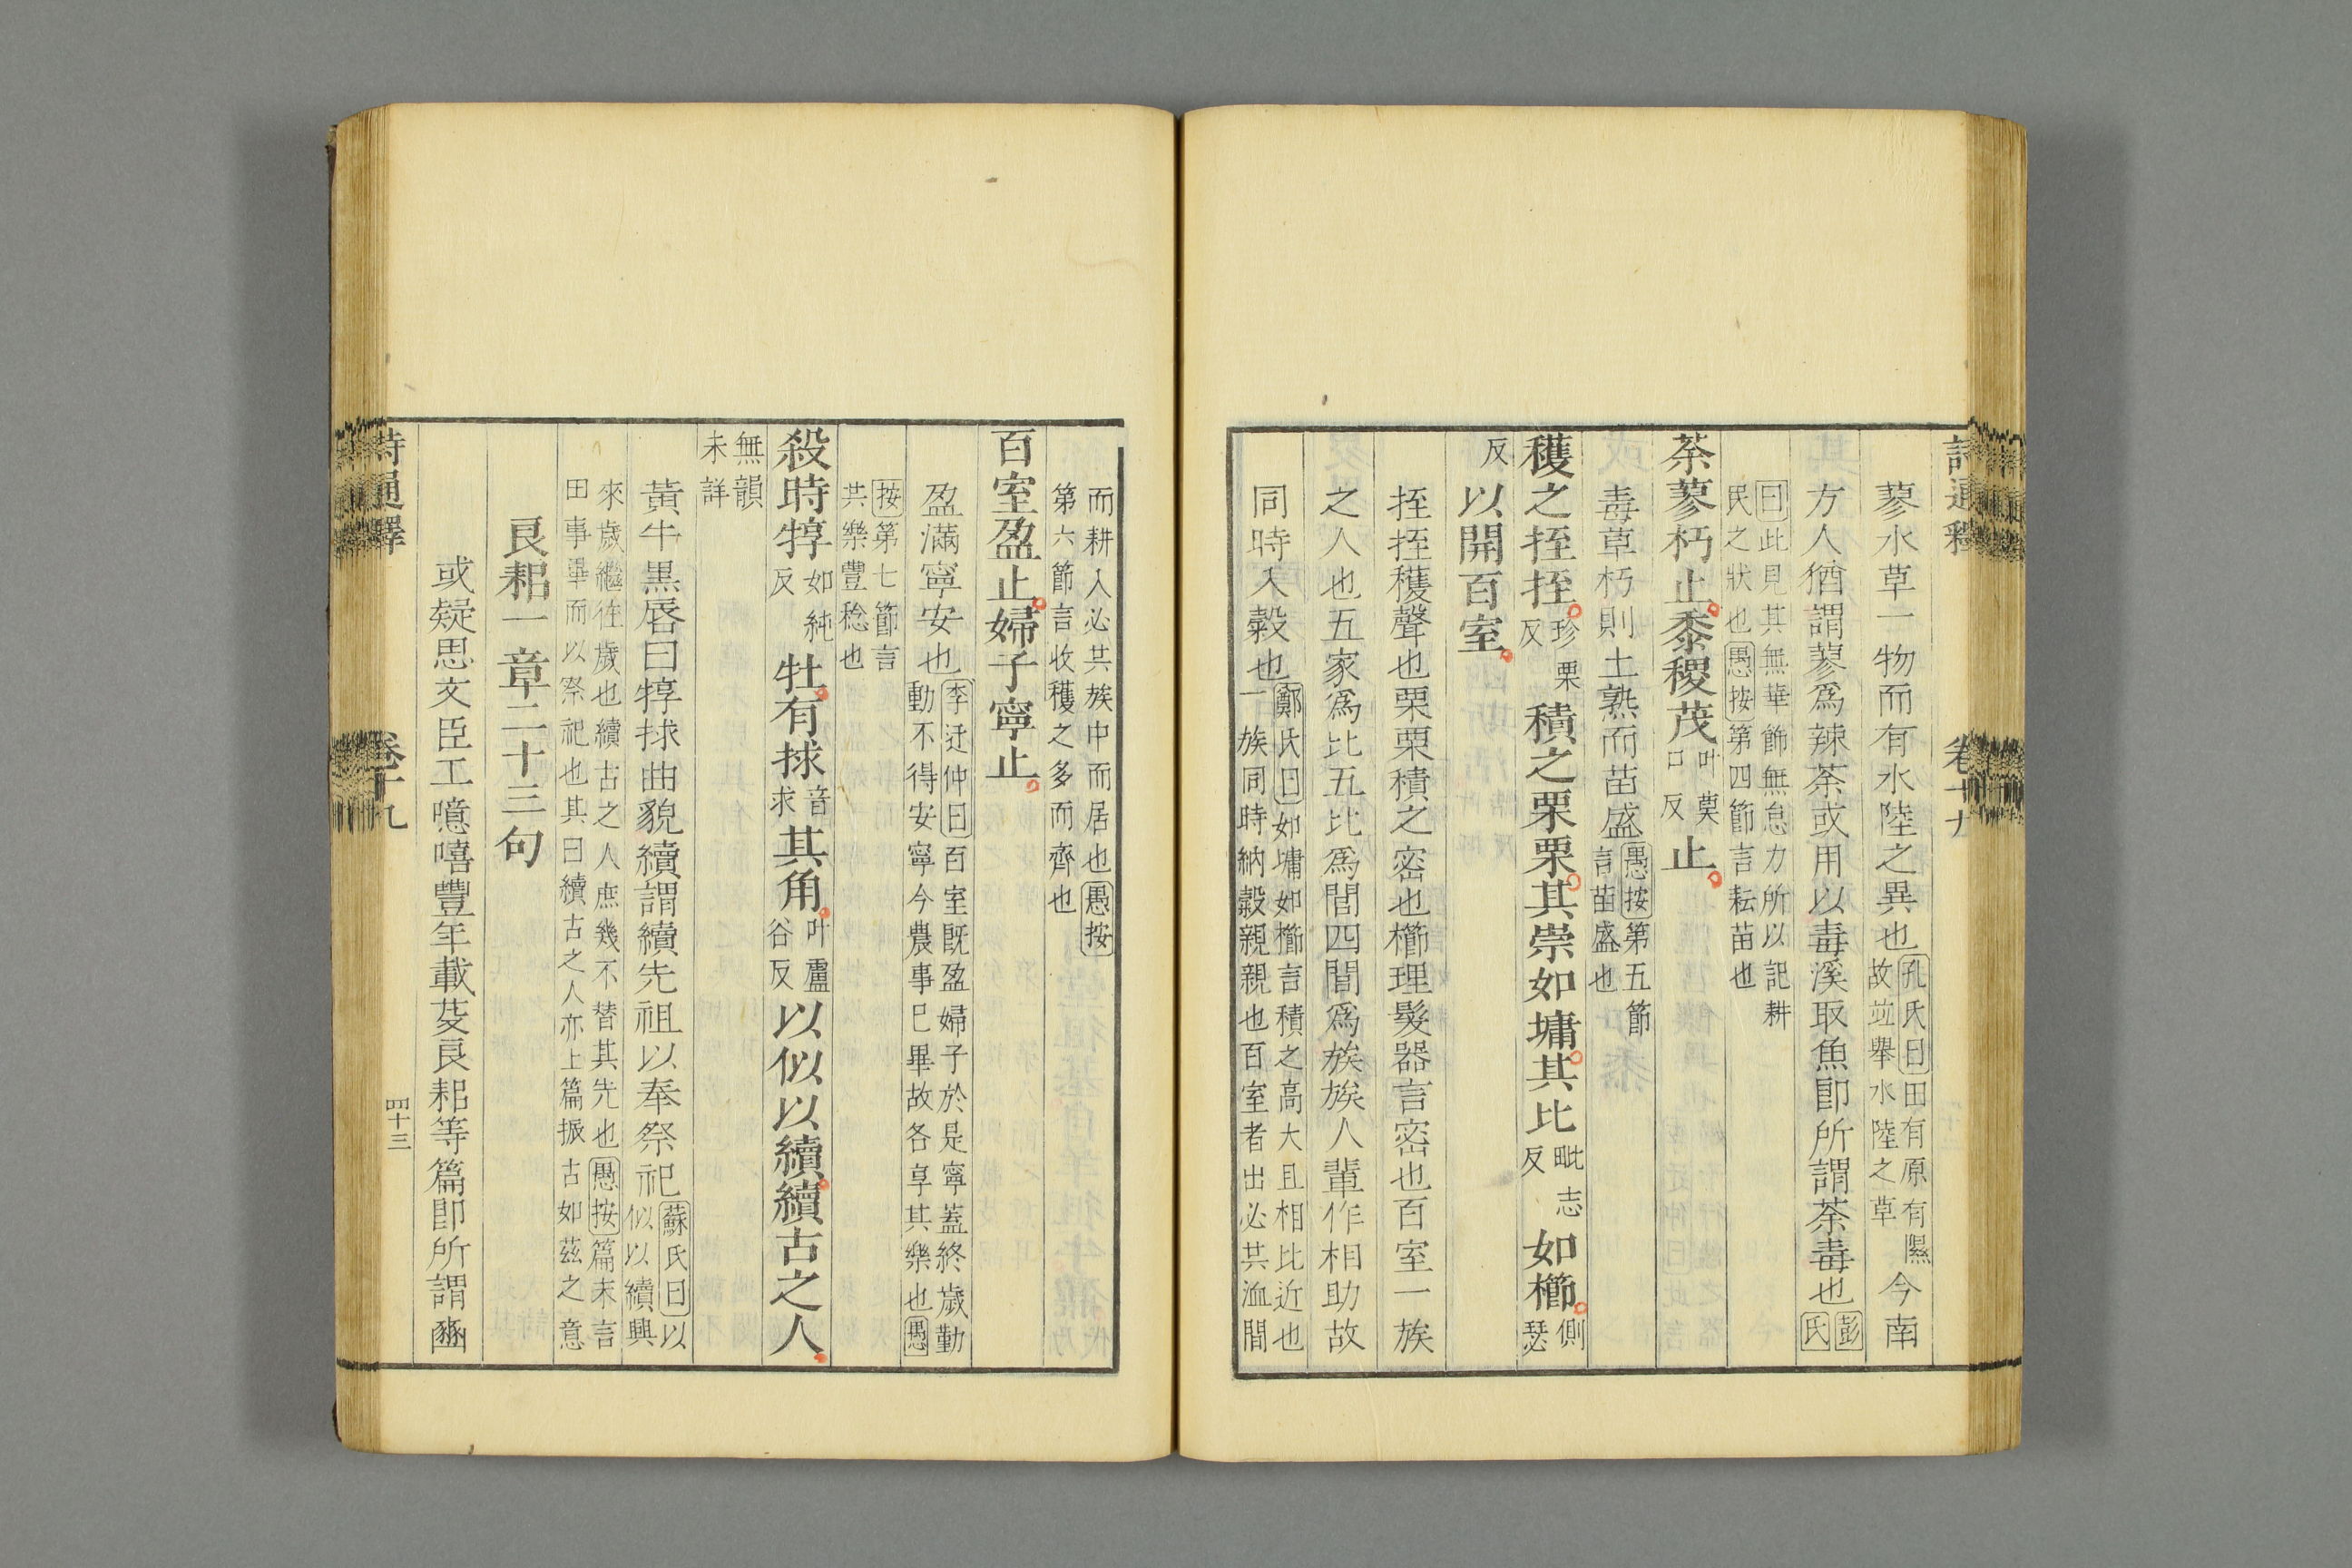 蓼水草一物而有水陸之異也孔氏曰田有原有隰故竝舉水陸之草今南
方人猶謂蓼爲辣荼或用以毒溪取魚卽所謂荼毒也彭氏
曰此見其無華飾無怠力所以記耕氏之狀也愚按第四節言耘苗也
荼蓼朽止黍稷茂叶莫口反止
毒草朽則土熟而苗盛愚按第五節言苗盛也
穫之挃挃珍栗反積之栗栗其崇如墉其比毗志反如櫛側瑟
反以開百室
挃挃穫聲也栗栗積之密也櫛理髮器言密也百室一族
之人也五家爲比五比爲閭四閭爲族族人輩作相助故
同時入穀也鄭氏曰如墉如櫛言積之高大且相比近也一族同時納穀親親也百室者出必共洫閒
而耕入必共族中而居也愚按第六節言收穫之多而齊也
百室盈止婦子寧止
盈滿寧安也李迂仲曰百室旣盈婦子於是寧蓋終歲勤動不得安寧今農事已畢故各享其樂也愚
按第七節言共樂豐稔也
殺時犉如純反牡有捄音求其角叶盧谷反以似以續續古之人
無韻未詳
黃牛黑唇曰犉捄曲貌續謂續先祖以奉祭祀蘇氏曰以似以續興
來歲繼徃歲也續古之人庶幾不替其先也愚按篇末言田事畢而以祭祀也其曰續古之人亦上篇振古如茲之意
良耜一章二十三句
或疑思文臣工噫嘻豐年載芟良耜等篇卽所謂豳
詩通釋 卷十九 四十三